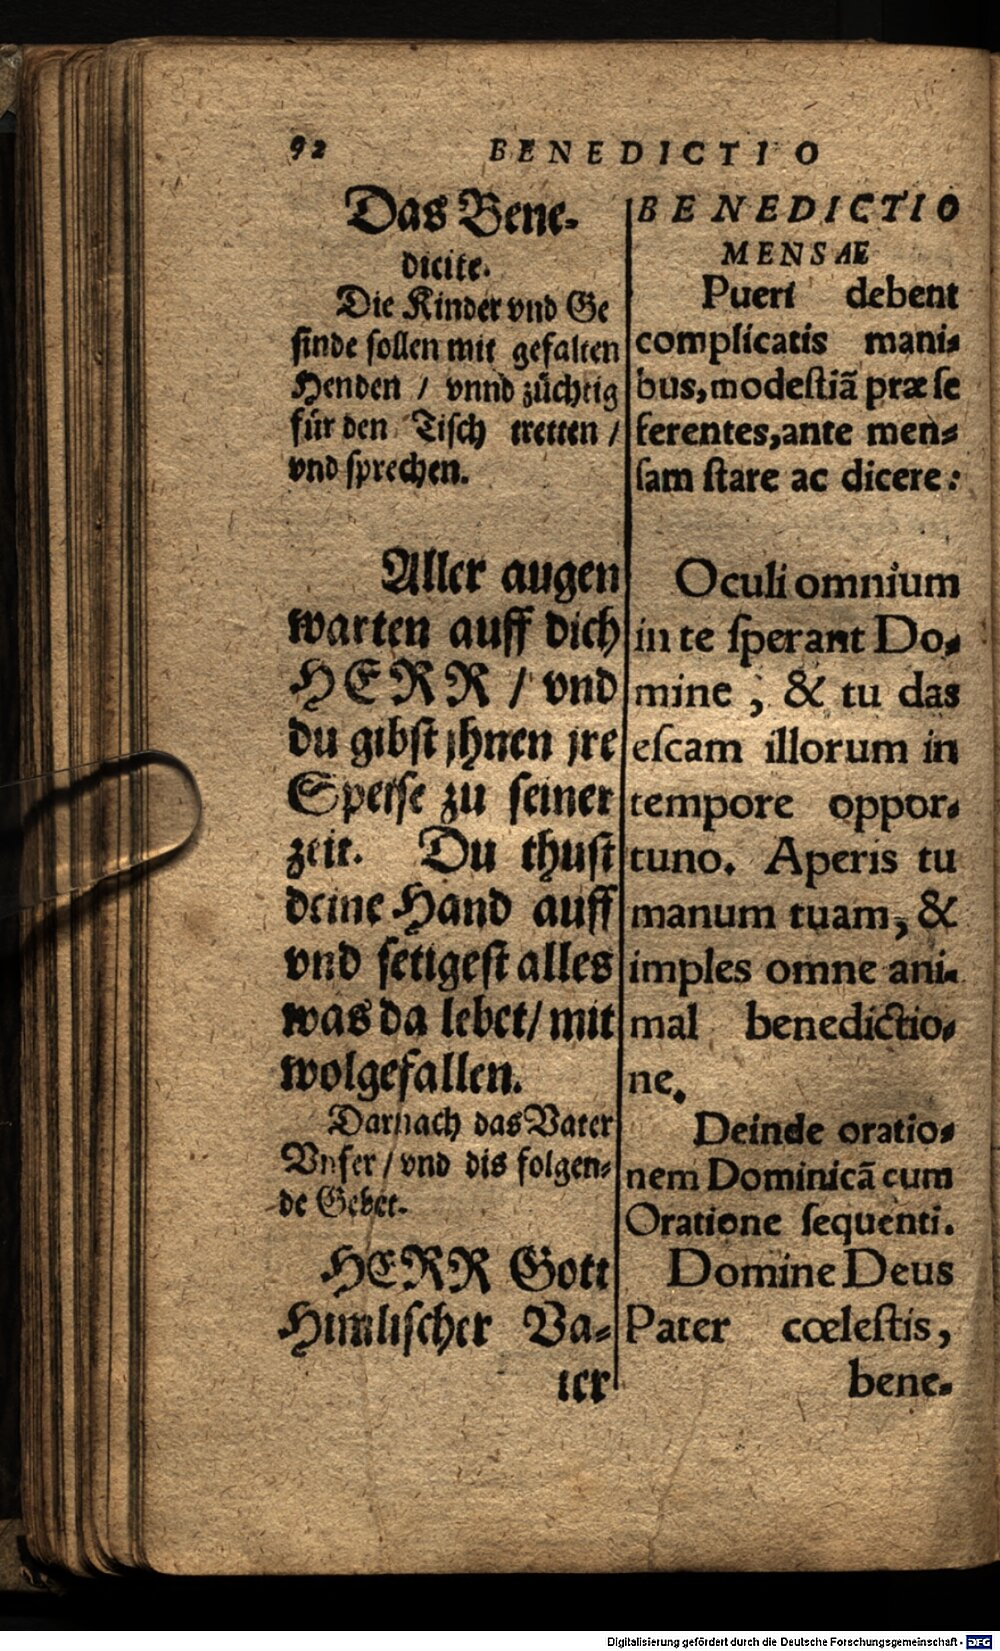 92 BENEDICTIO
Das Bene-
dicite.
Die Kinder vnd Ge
sinde sollen mit gefalten
Henden / vnnd züchtig
für den Tisch tretten /
vnd sprechen.
Aller augen
warten auff dich
HERR / vnd
du gibst jhnen jre
Speise zu seiner
zeit. Du thust
deine Hand auff
vnd settigest alles
was da lebet/ mit
wolgefallen.
Darnach das Vater
Vnser / vnd dis folgen-
de Gebet.
HERR Gott
Himlischer Va-
ter
BENEDICTIO
MENSAE
Pueri debent
complicatis mani-
bus, modeſtiã præ ſe
ferentes, ante men-
ſam ſtare ac dicere:
Oculi omnium
in te ſperant Do-
mine ; & tu das
eſcam illorum in
tempore oppor-
tuno. Aperis tu
manum tuam, &
imples omne ani-
mal benedictio-
ne.
Deinde oratio-
nem Dominicã cum
Oratione ſequenti.
Domine Deus
Pater cœleſtis,
bene-
Digitalisierung gefördert durch die Deutsche Forschungsgemeinschaft - DFG